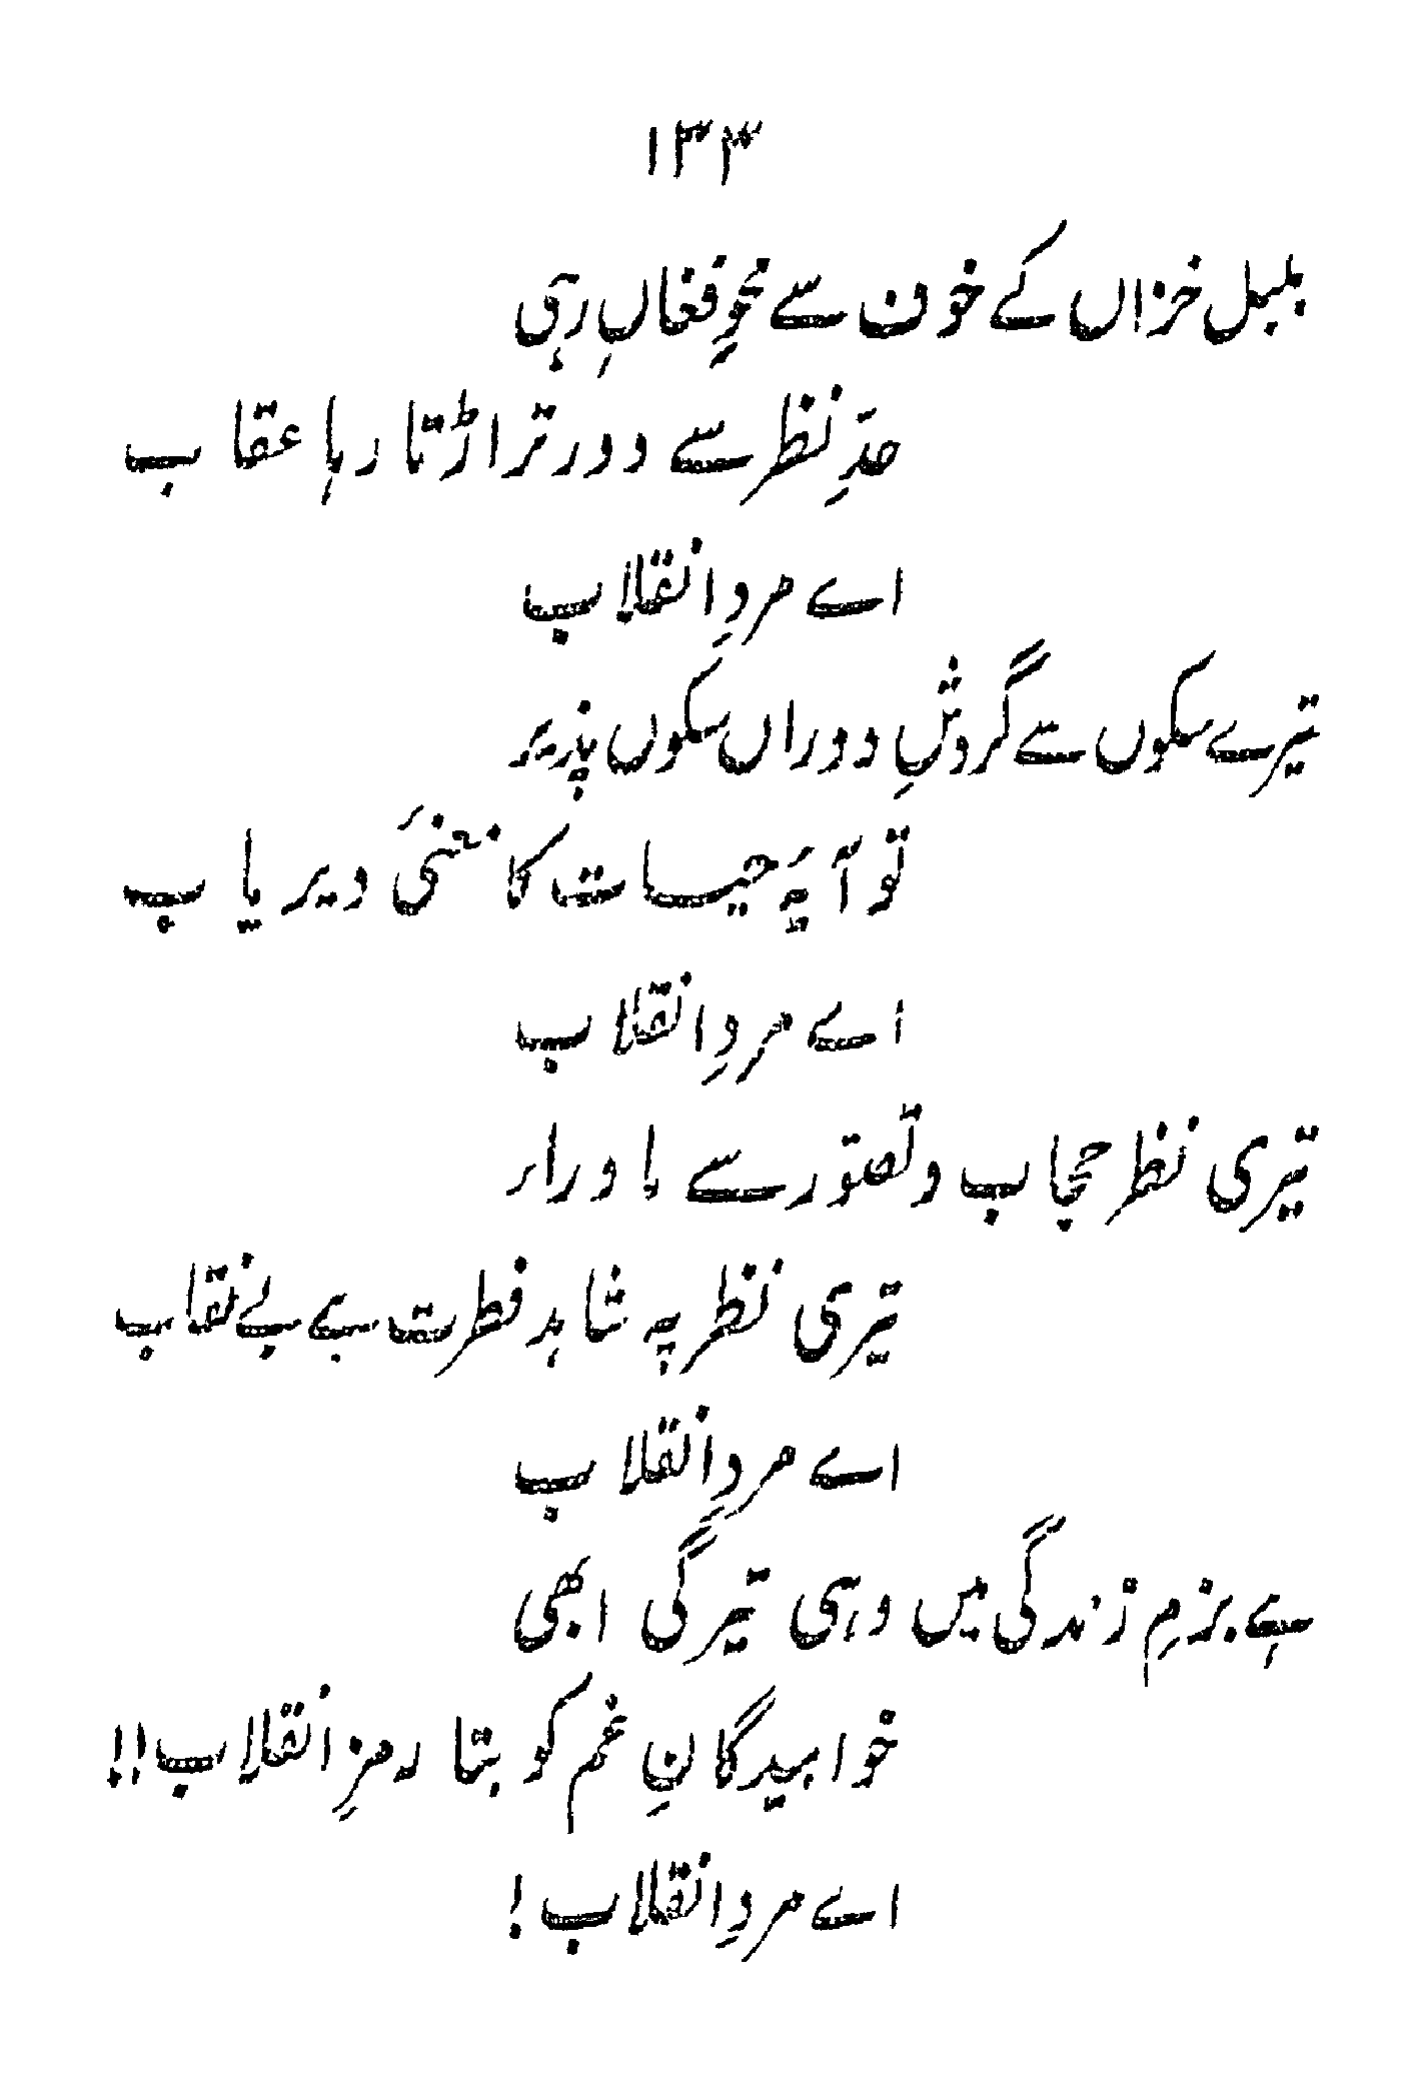 ۱۳۳
بلبل خزاں کے خون سے محوِ فغاں رہی
حدِّ نظر سے دور ترا اڑتا رہا عقاب
اے مردِ انقلاب
تیرے سکوں سے گردشِ دوراں سکوں پذیر
تو آیۂ حیات کا معنیٔ دیر یاب
اے مردِ انقلاب
تیری نظر حجاب و تصوّر سے ماوراء
تیری نظر پہ شاہد فطرت ہے بے نقاب
اے مردِ انقلاب
ہے بزمِ زندگی میں وہی تیرگی ابھی
خوابیدگانِ غم کو بتا رمزِ انقلاب!!
اے مردِ انقلاب!